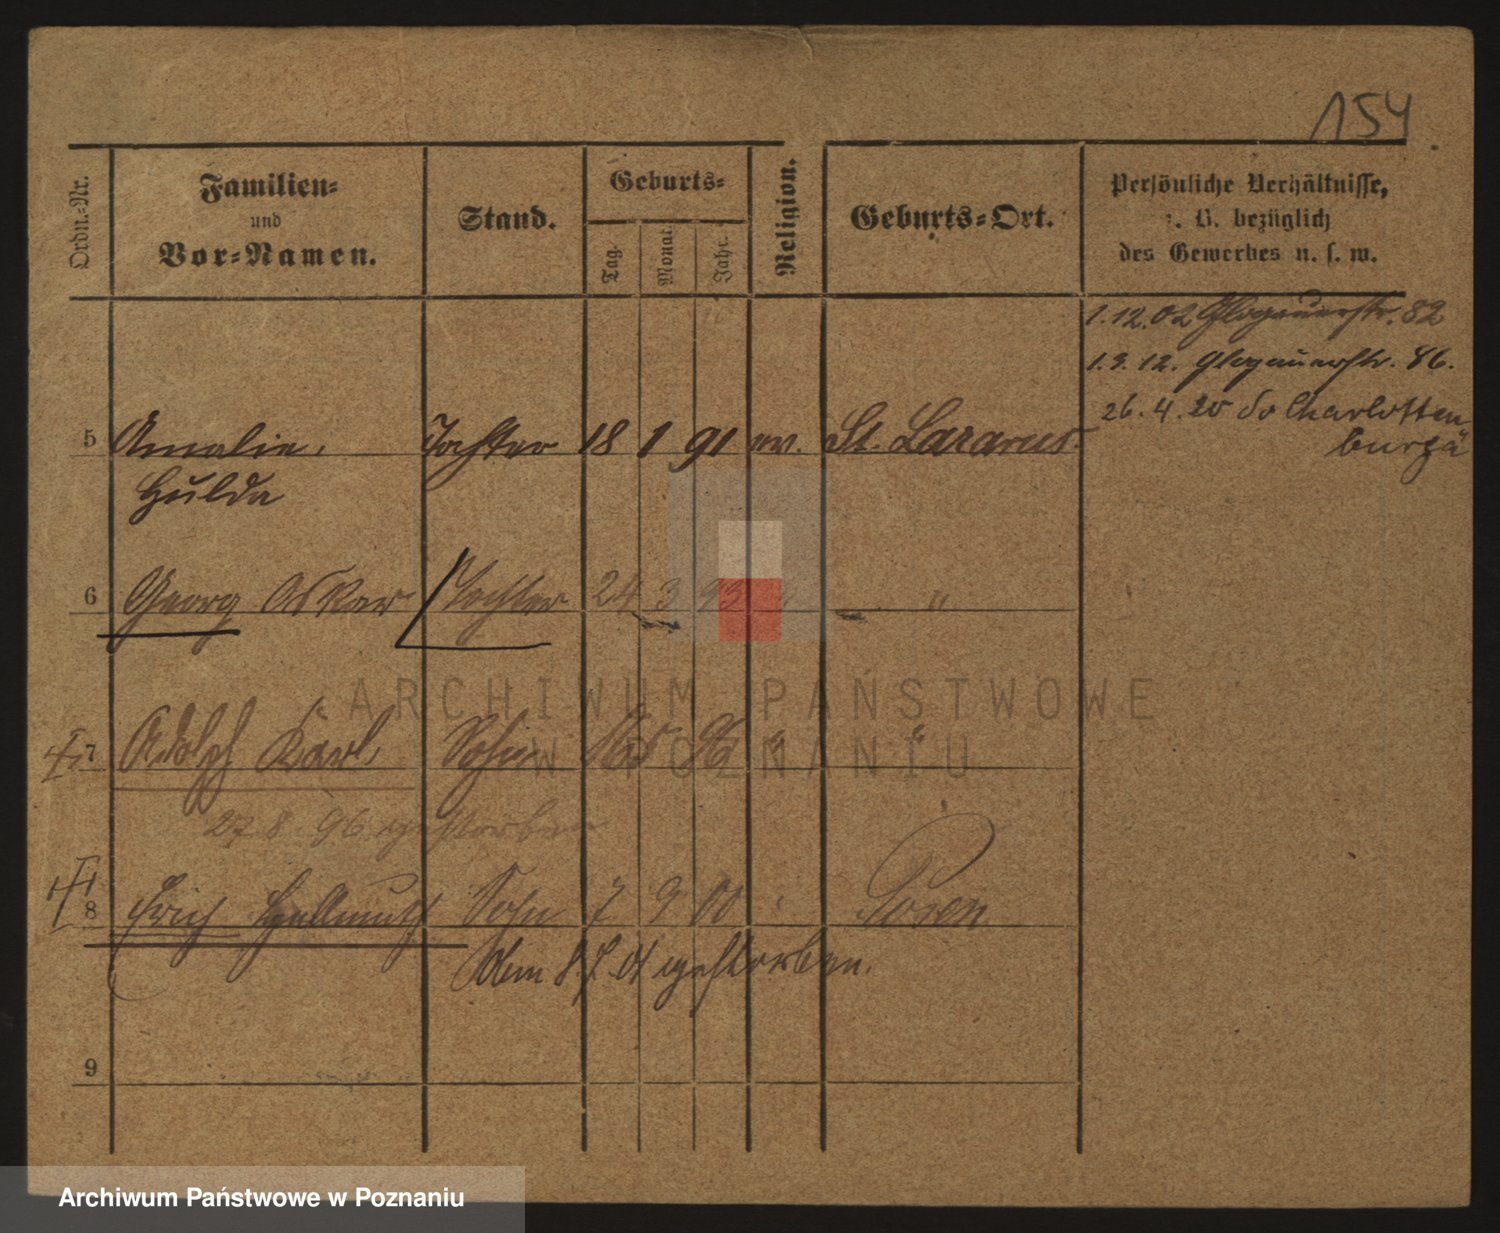 154
Ordn.-Nr.
Familien-
und
Vor-Namen.
Stand.
Geburts-
Tag.
Monat.
Jahr.
Religion.
Geburts-Ort.
Persönliche Verhältnisse,
z. B. bezüglich
des Gewerbes u. s. w.
1.12.02 Glogauerstr. 82
1.3.12. Glogauerstr. 86.
26.4.20 Charlotten
burg
5 Amalie, Tochter 18 1 91 ev. St. Lazarus
Hulda
6 Georg Oskar Tochter 24 3 93 " "
7 Adolf Karl Sohn 96 " "
27 8. 96 gestorben
8 Erich Hellmuth Sohn 7 9 00 Posen
Am 8.7.01 gestorben.
9
ARCHIWUM PAŃSTWOWE
W POZNANIU
Archiwum Państwowe w Poznaniu